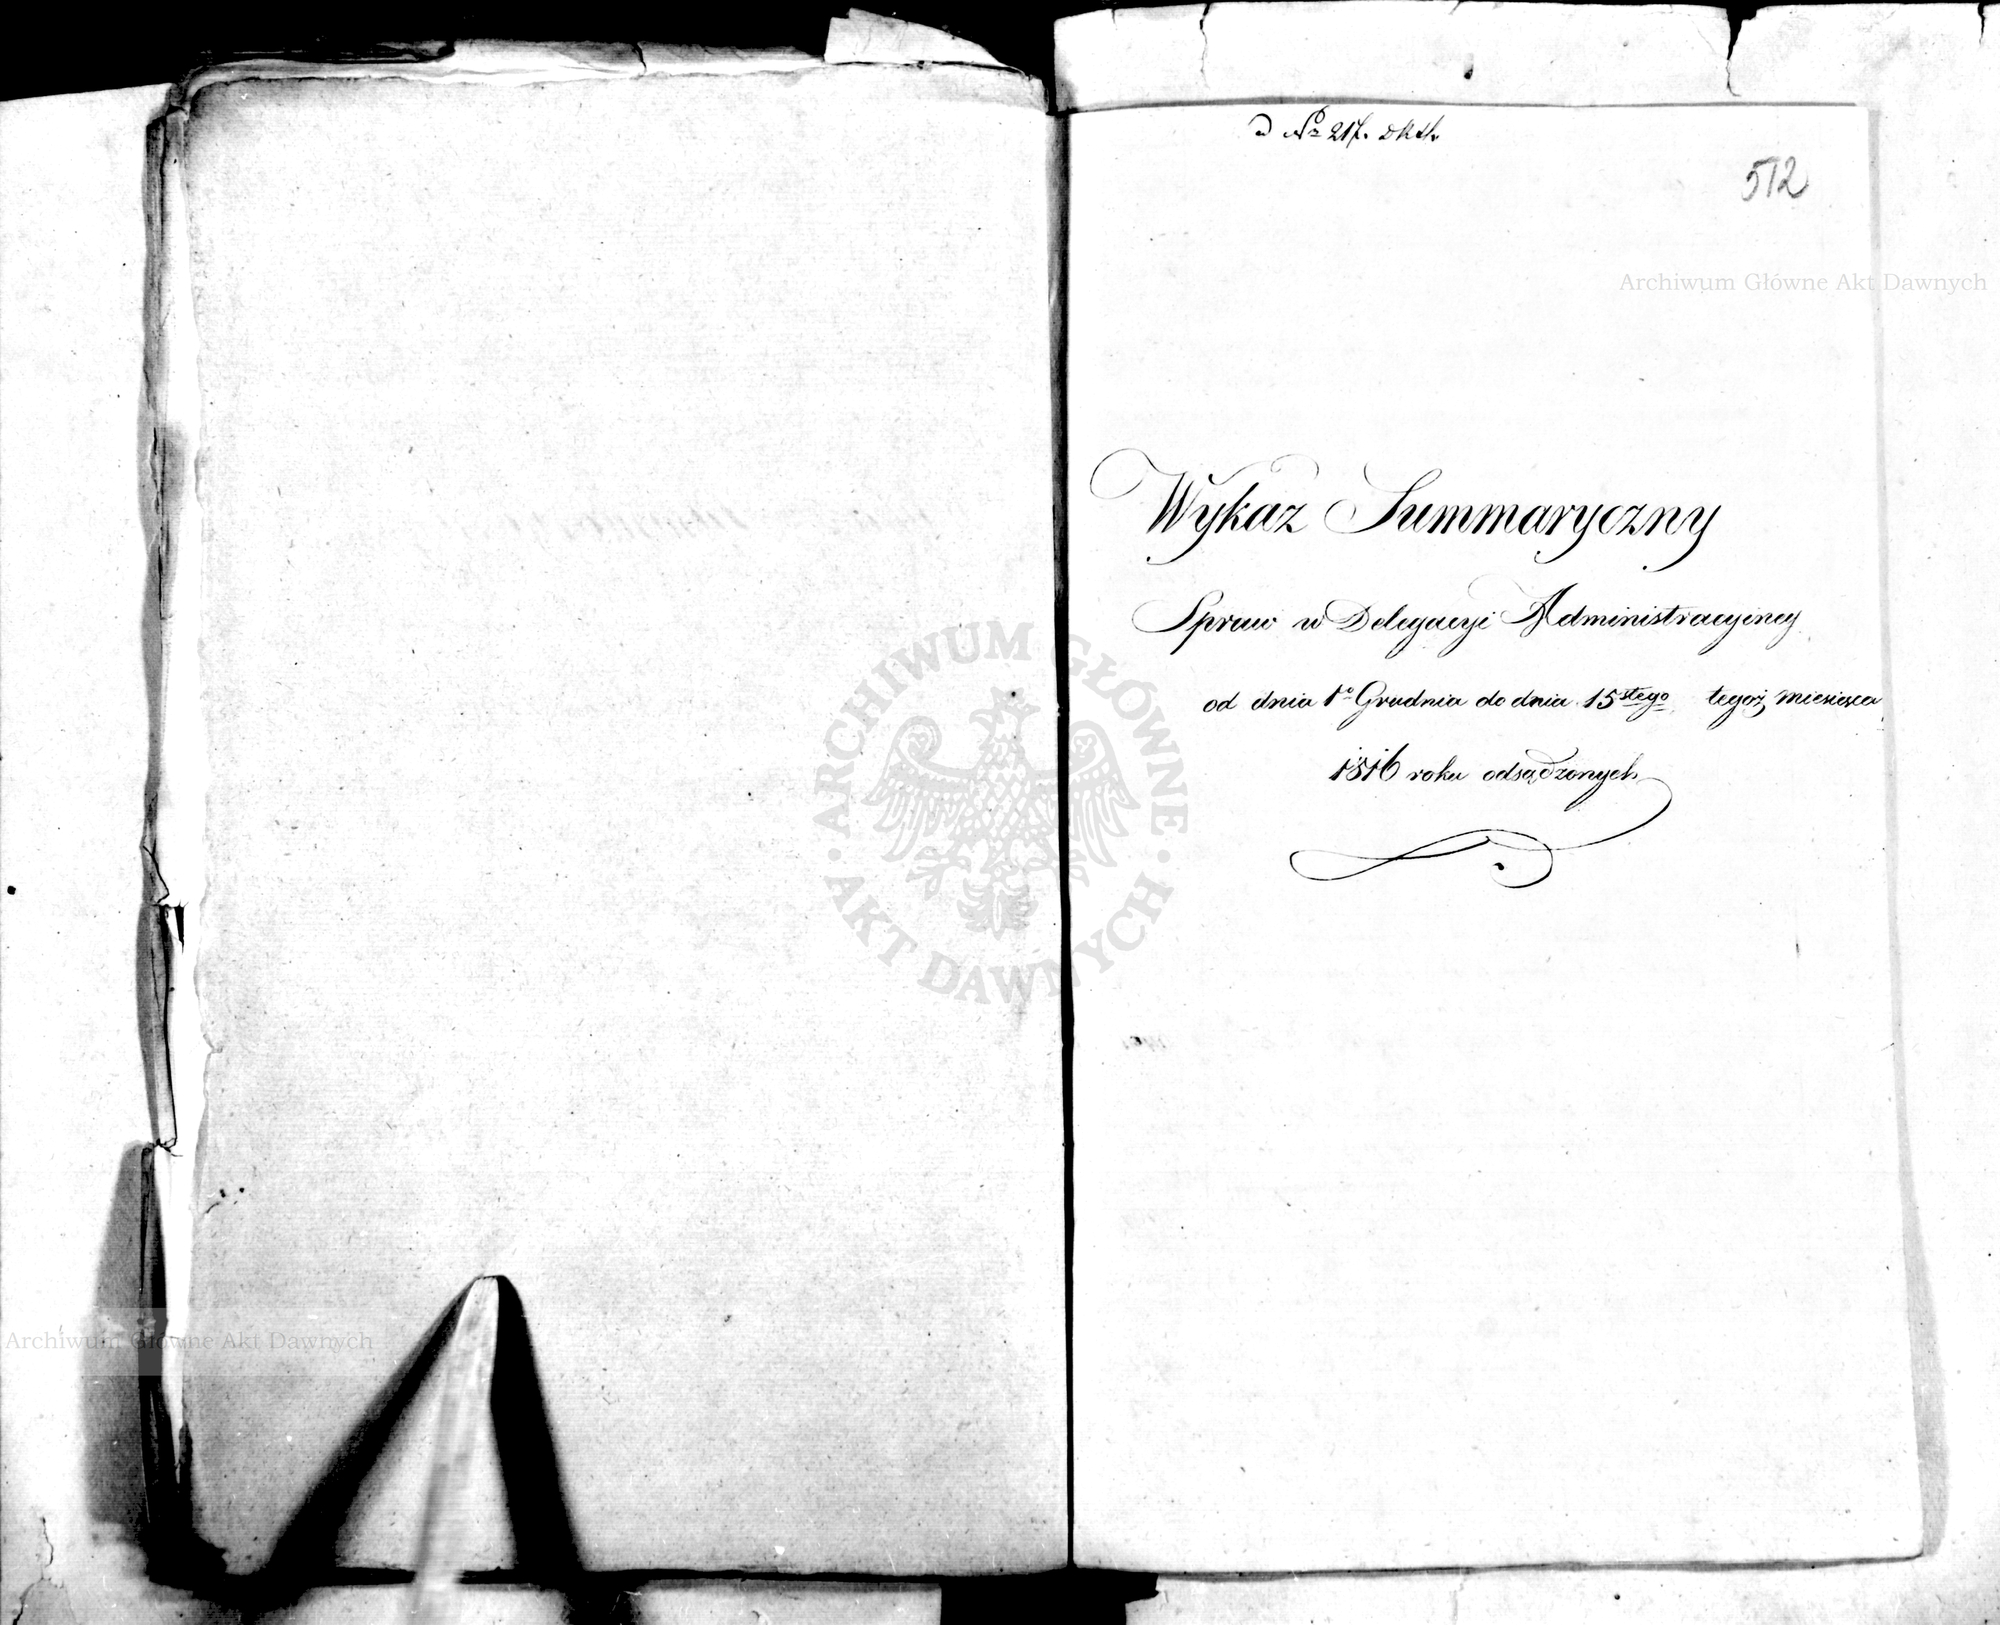 № 217.
512
Archiwum Główne Akt Dawnych
Wykaz Summaryczny
Spraw w Delegacyi Administracyiney
od dnia 1º Grudnia do dnia 15stego tegoż miesiąca
1816 roku odsądzonych
ARCHIWUM GŁÓWNE
AKT DAWNYCH
Archiwum Główne Akt Dawnych